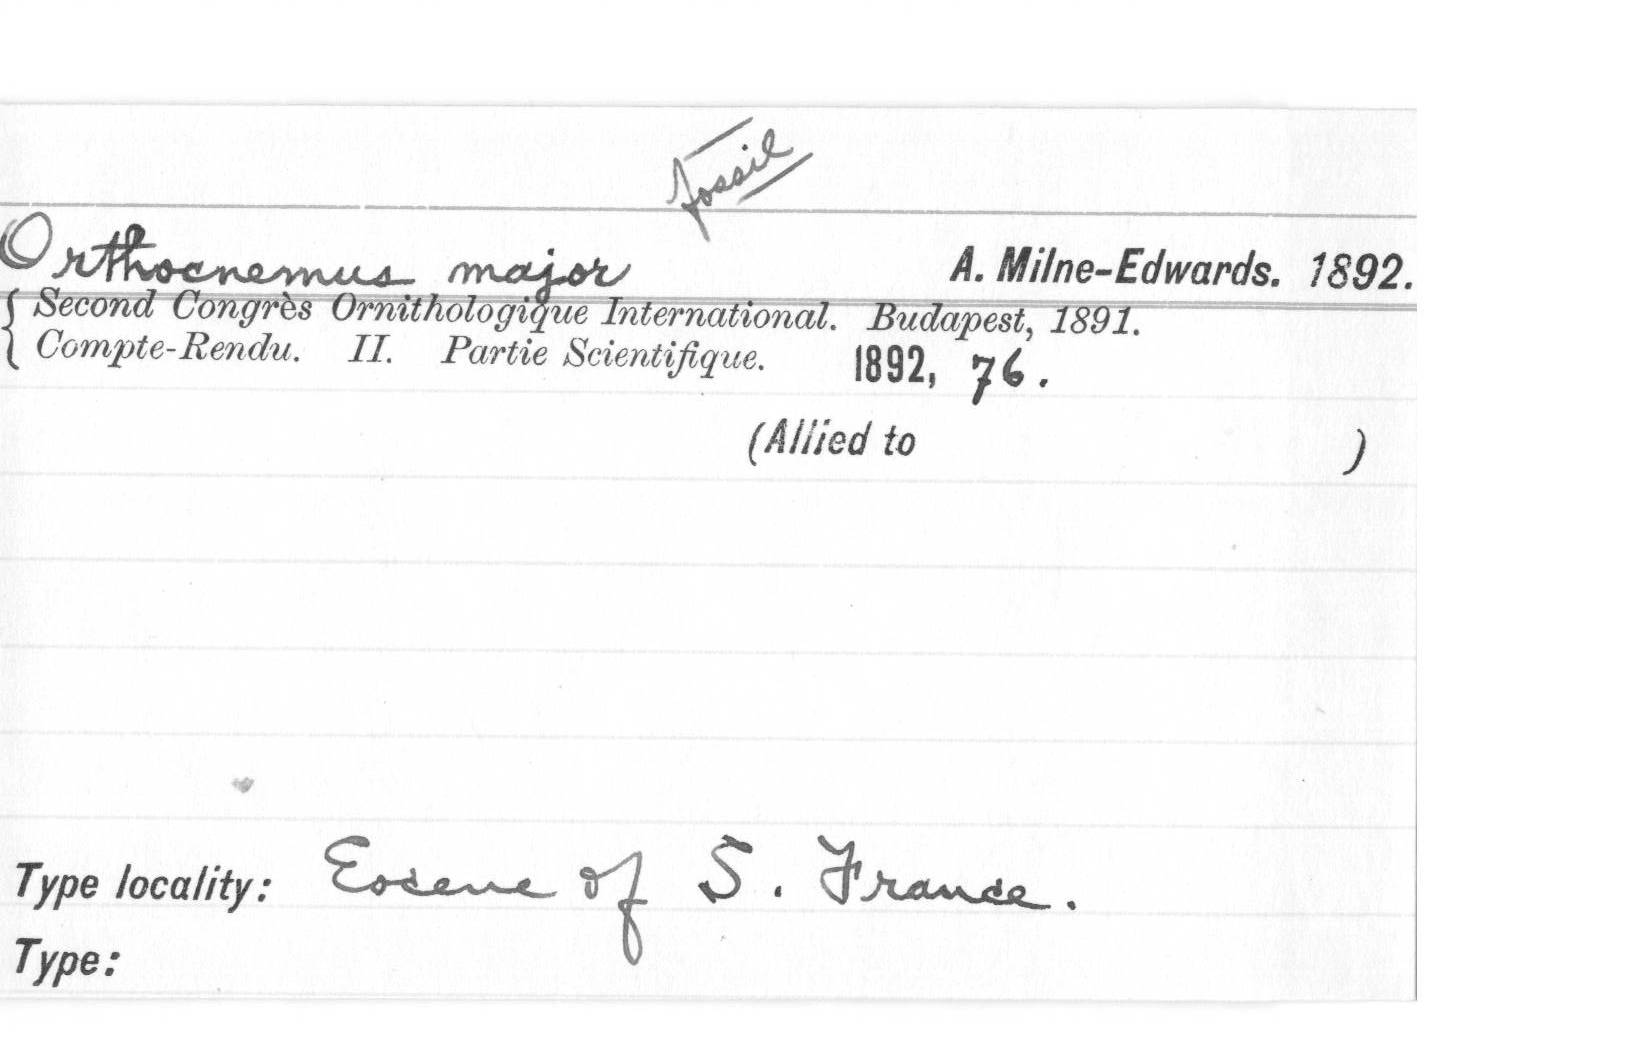 fossil
Orthocnemus major A. Milne-Edwards. 1892.
{ Second Congrès Ornithologique International. Budapest, 1891.
Compte-Rendu. II. Partie Scientifique. 1892, 76.
(Allied to )
Type locality: Eocene of S. France.
Type: